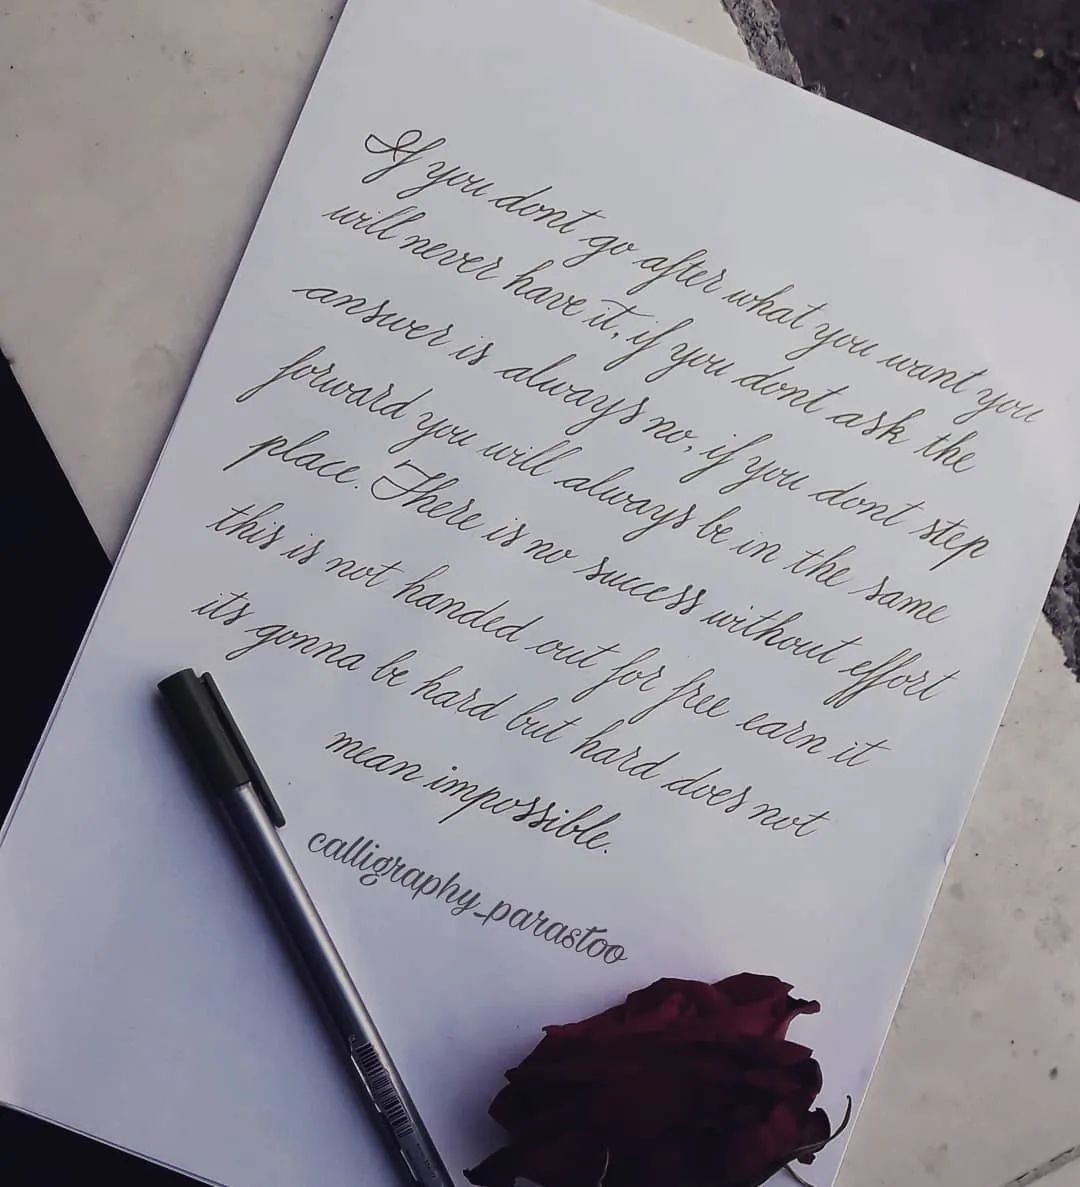 If you dont go after what you want you
will never have it, if you dont ask the
answer is always no, if you dont step
forward you will always be in the same
place. There is no success without effort
this is not handed out for free earn it
its gonna be hard but hard does not
mean impossible.
calligraphy_parastoo